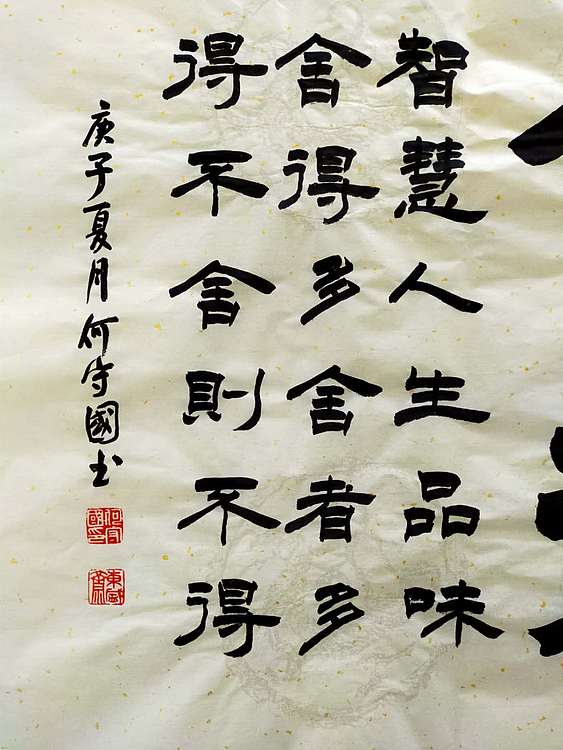 智慧人生品味
舍得多舍者多
得不舍則不得
庚子夏月何守國书